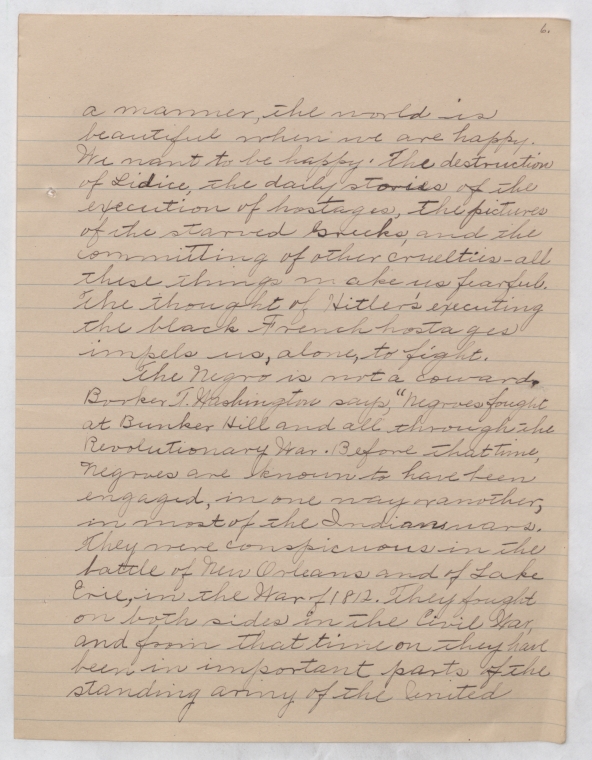 6.
a manner, the world is
beautiful when we are happy.
We want to be happy. The destruction
of Lidice, the daily stories of the
execution of hostages, the pictures
of the starved Greeks, and the
committing of other cruelties-all
these things make us fearful.
The thought of Hitler's executing
the black French hostages
impels us, alone, to fight.
The Negro is not a coward.
Booker T. Washington says, "Negroes fought
at Bunker Hill and all through the
Revolutionary War. Before that time,
Negroes are known to have been
engaged, in one way or another,
in most of the Indian wars.
They were conspicuous in the
battle of New Orleans and of Lake
Erie, in the War of 1812. They fought
on both sides in the Civil War,
and from that time on they have
been in important parts of the
standing army of the United